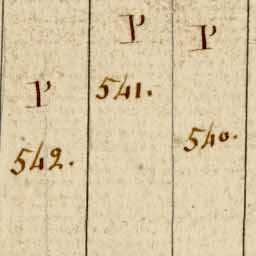 P
P
P
541.
540.
542.